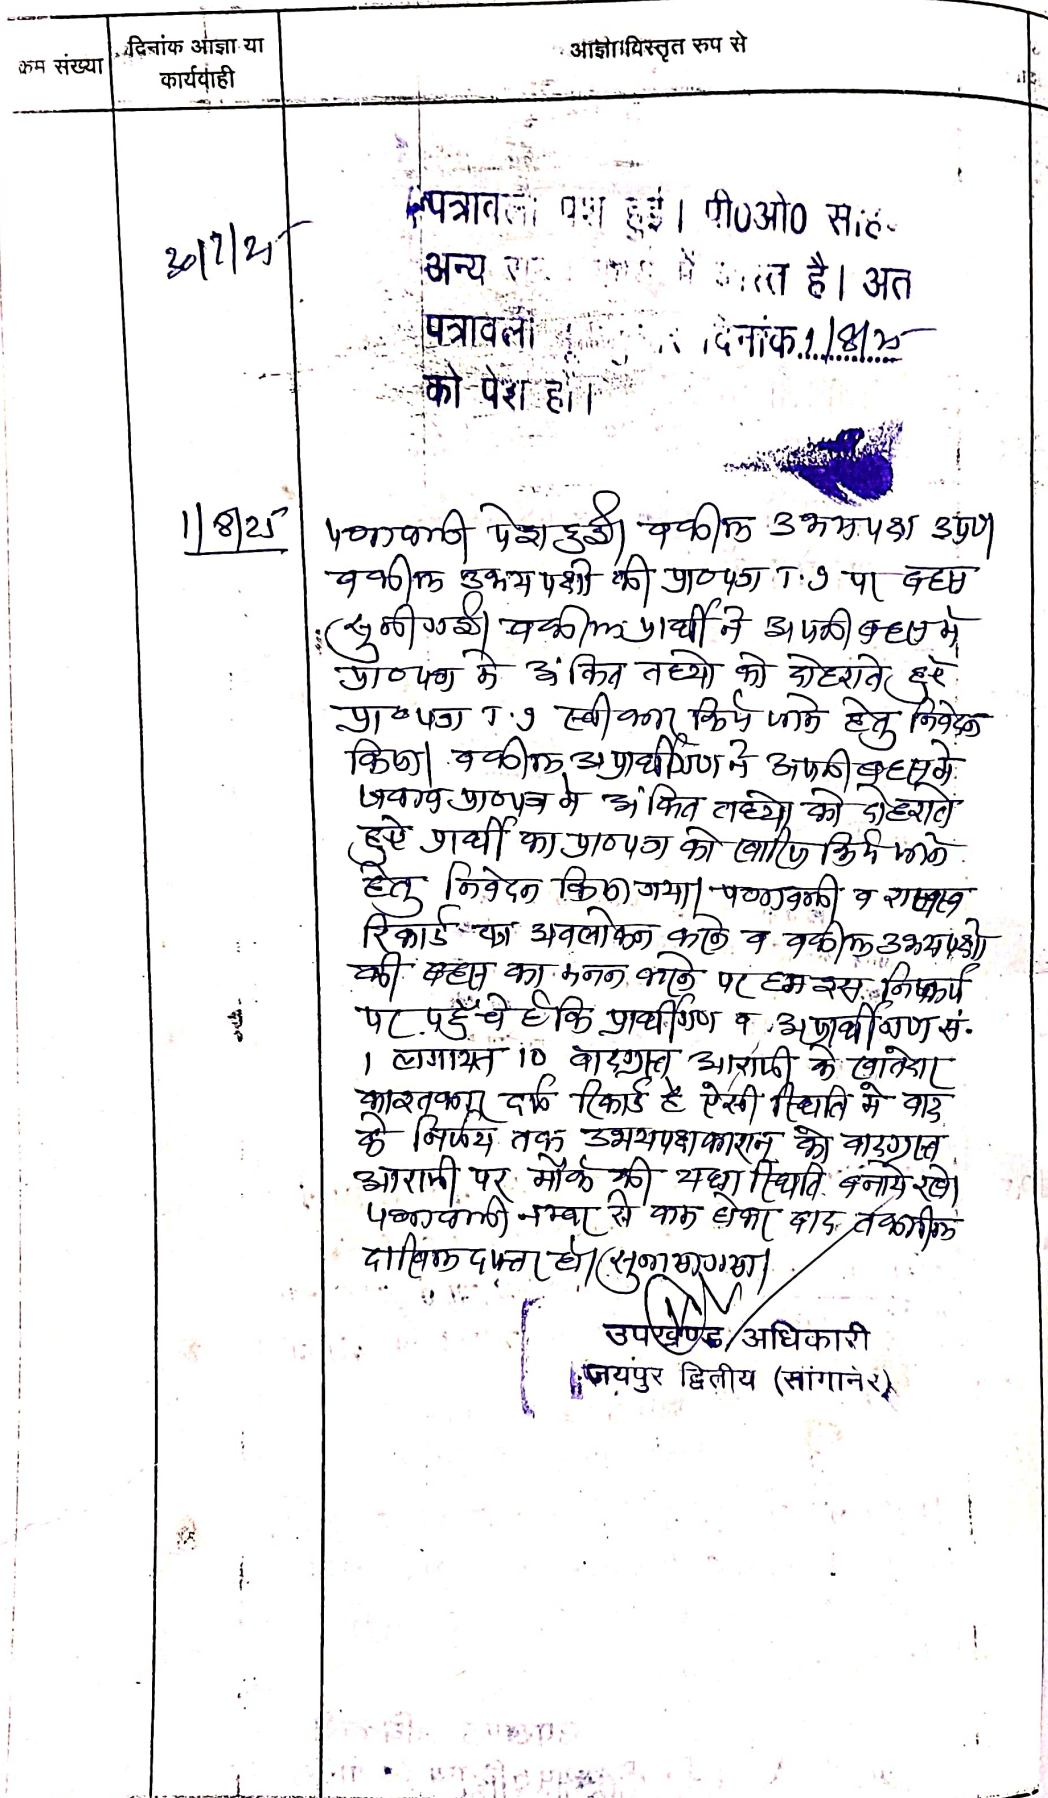 क्रम संख्या
दिनांक आज्ञा या
कार्यवाही
आज्ञा विस्तृत रुप से
30/7/25
पत्रावली पेश हुई। पी0ओ0
अन्य है। अत
पत्रावली दिनांक 1/8/25
को पेश हो।
1/8/25
पत्रावली पेश हुई। वकील उभयपक्ष उप०।
वकील उभयपक्षो की प्रा०पत्र T.I पर बहस
सुनी गई। वकील प्रार्थी ने अपनी बहस मे
प्रा०पत्र मे अंकित तथ्यो को दोहराते हुए
प्रा०पत्र T.I स्वीकार किये जाने हेतु निवेदन
किया। वकील अप्रार्थीगण ने अपनी बहस मे
जवाब प्रा०पत्र मे अंकित तथ्यो को दोहराते
हुऐ प्रार्थी का प्रा०पत्र को खारिज किये जाने
हेतु निवेदन किया गया। पत्रावली व राजस्व
रिकार्ड का अवलोकन करने व वकील उभयपक्षो
की बहस का मनन करने पर हम इस निष्कर्ष
पर पहुँचे है कि प्रार्थीगण व अप्रार्थीगण सं.
1 लगायत 10 वादग्रस्त आराजी के खातेदार
काश्तकार दर्ज रिकार्ड है ऐसी स्थिति मे वाद
के निर्णय तक उभयपक्षकारान को वादग्रस्त
आराजी पर मौके की यथा स्थिति बनाये रखे।
पत्रावली नम्बर से कम होकर बाद तकमील
दाखिल दफ्तर हो। सुनाया गया।
उपखण्ड अधिकारी
जयपुर द्वितीय (सांगानेर)